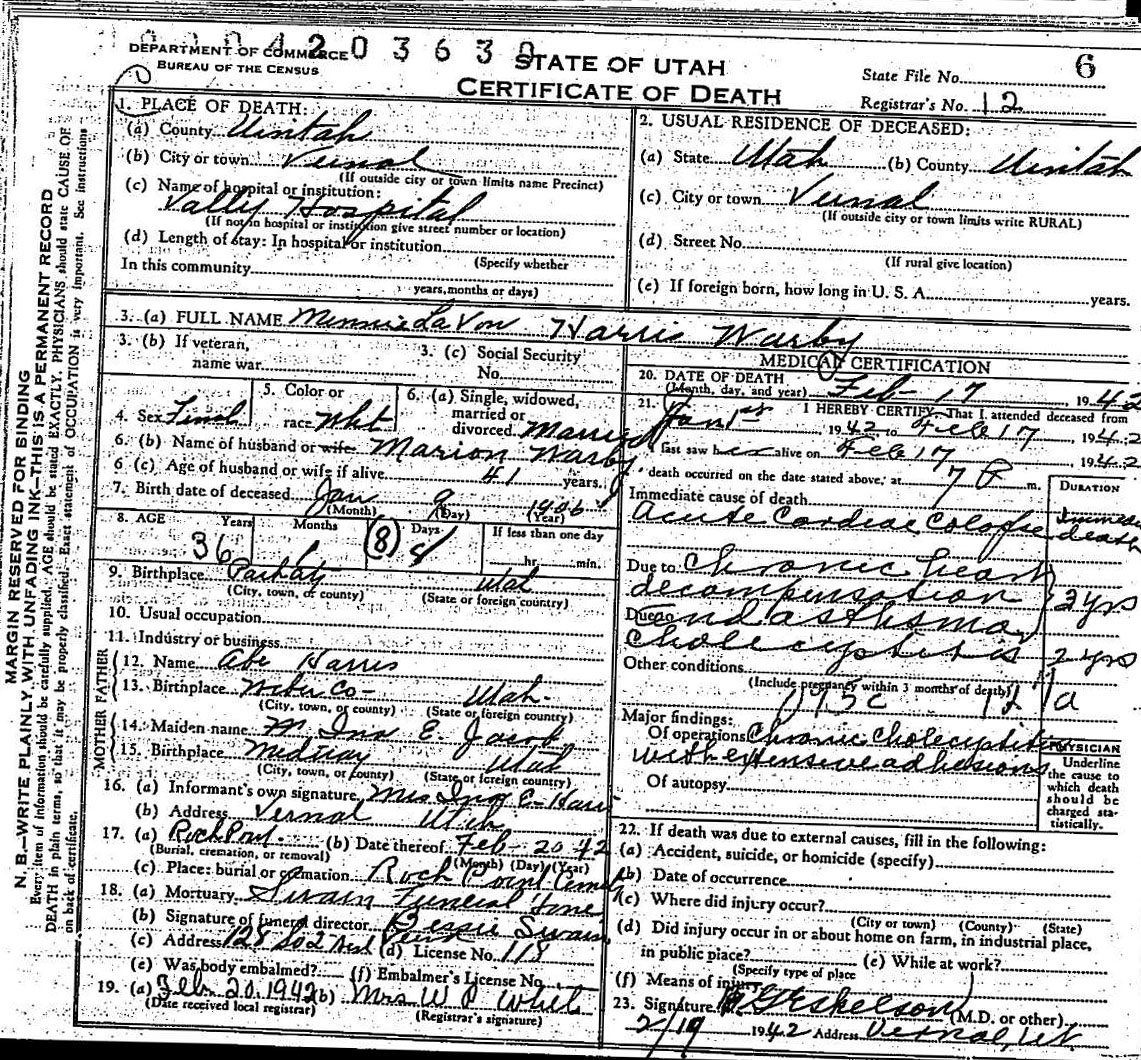 DEPARTMENT OF COMMERCE
BUREAU OF THE CENSUS
STATE OF UTAH
CERTIFICATE OF DEATH
6
State File No.
Registrar's No. 12
MARGIN RESERVED FOR BINDING
N. B.—WRITE PLAINLY WITH UNFADING INK—THIS IS A PERMANENT RECORD
Every item of information should be carefully supplied. AGE should be stated EXACTLY. PHYSICIANS should state CAUSE OF
DEATH in plain terms, so that it may be properly classified. Exact statement of OCCUPATION is very important. See instructions
on back of certificate.
1. PLACE OF DEATH:
(a) County Uintah
(b) City or town Vernal
(If outside city or town limits name Precinct)
(c) Name of hospital or institution:
Vally Hospital
(If not in hospital or institution give street number or location)
(d) Length of stay: In hospital or institution
(Specify whether
In this community
years, months or days)
2. USUAL RESIDENCE OF DECEASED:
(a) State Utah (b) County Uintah
(c) City or town Vernal
(If outside city or town limits write RURAL)
(d) Street No.
(If rural give location)
(e) If foreign born, how long in U. S. A. years.
3. (a) FULL NAME Minnie LaVon Harris Warby
3. (b) If veteran,
name war
3. (c) Social Security
No.
4. Sex Femal
5. Color or
race Wht
6. (a) Single, widowed,
married or
divorced Married
6. (b) Name of husband or wife Marion Warby
6 (c) Age of husband or wife if alive 41 years.
7. Birth date of deceased Jan 9 1906
(Month) (Day) (Year)
8. AGE Years Months Days If less than one day
36 1 (8) 8 hr. min.
9. Birthplace Utah
(City, town, or county) (State or foreign country)
10. Usual occupation
11. Industry or business
FATHER
12. Name Abe Harris
13. Birthplace Weber Co- Utah
(City, town, or county) (State or foreign country)
MOTHER
14. Maiden name M. Ina E. Jacob
15. Birthplace Midway Utah
(City, town, or county) (State or foreign country)
16. (a) Informant's own signature Mrs Ina E- Harris
(b) Address Vernal Utah
17. (a) Rock Point. (b) Date thereof Feb- 20 42
(Burial, cremation, or removal) (Month) (Day) (Year)
(c) Place: burial or cremation Rock Point Cemet
18. (a) Mortuary Swain Funeral Home
(b) Signature of funeral director Bessie Swain
(c) Address 128 So 2 West Vernal (d) License No. 118
(e) Was body embalmed? (f) Embalmer's License No.
19. (a) Feb. 20, 1942 (b) Mrs W P
(Date received local registrar) (Registrar's signature)
MEDICAL CERTIFICATION
20. DATE OF DEATH
(Month, day, and year) Feb 17 1942
21. I HEREBY CERTIFY, That I attended deceased from
Jan 1st 1942 to Feb 17, 1942
I last saw her alive on Feb 17 1942
death occurred on the date stated above, at 7 P m.
DURATION
Immediate cause of death
acute Cardiac Colapse
death
Due to Chronic heart
decompensation 2 yrs
Due to and asthsma
Cholecyptitis 2 yrs
Other conditions
(Include pregnancy within 3 months of death)
Major findings:
Of operations Chronic Cholecyptitis
with extensive adhesions
Of autopsy
PHYSICIAN
Underline
the cause to
which death
should be
charged sta-
tistically.
22. If death was due to external causes, fill in the following:
(a) Accident, suicide, or homicide (specify)
(b) Date of occurrence
(c) Where did injury occur?
(City or town) (County) (State)
(d) Did injury occur in or about home on farm, in industrial place,
in public place? (e) While at work?
(Specify type of place
(f) Means of injury
23. Signature Eskelson (M.D. or other)
2/19 1942 Address Vernal, Ut